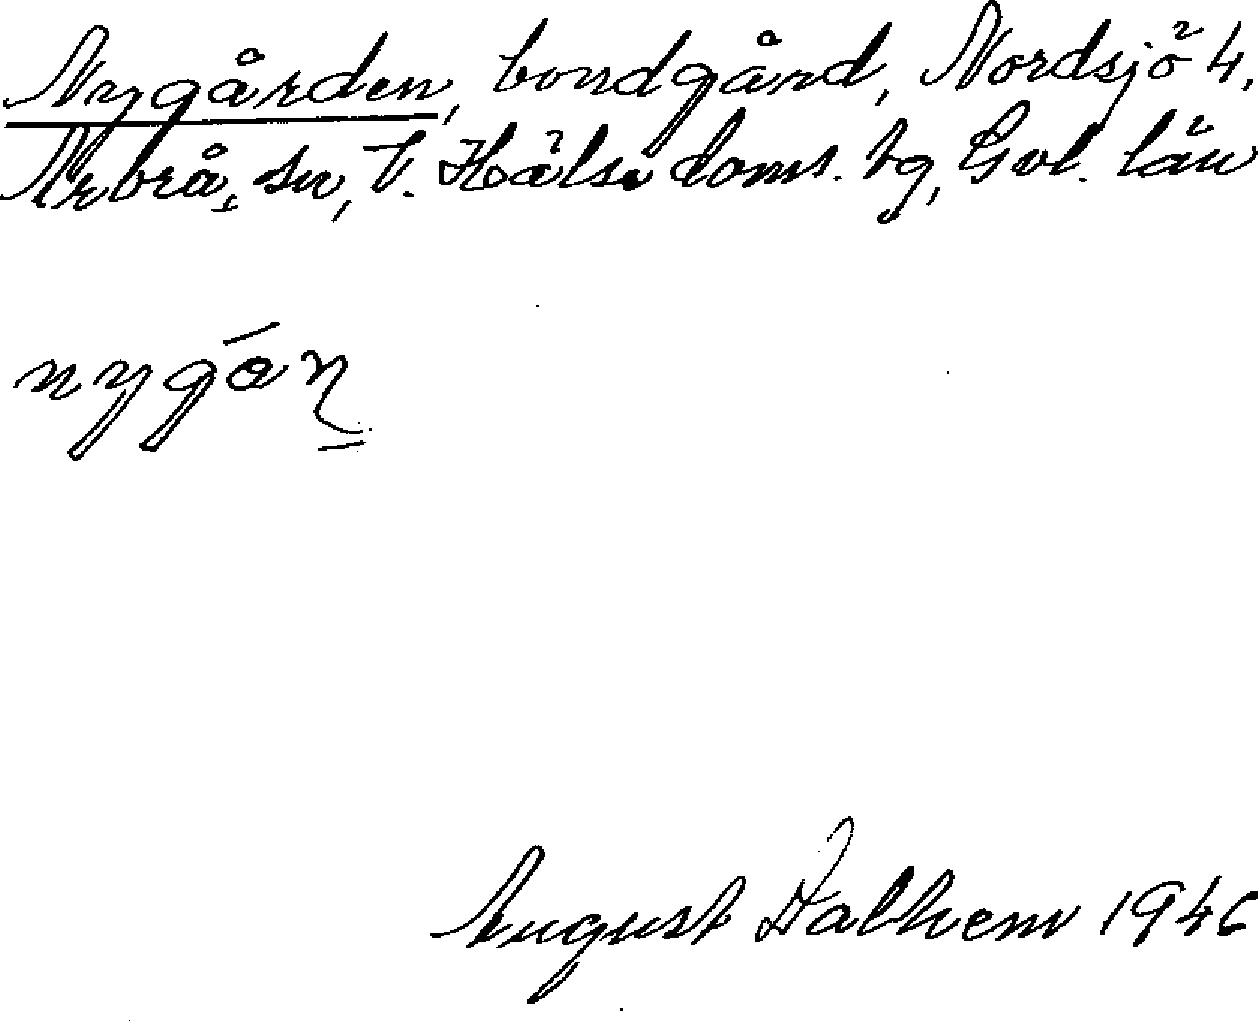 Nygården, bondgård, Nordsjö 4,
Arbrå, sn, V. Häls. doms. tg, Gvl. län
nygón
August Dalhem 1946